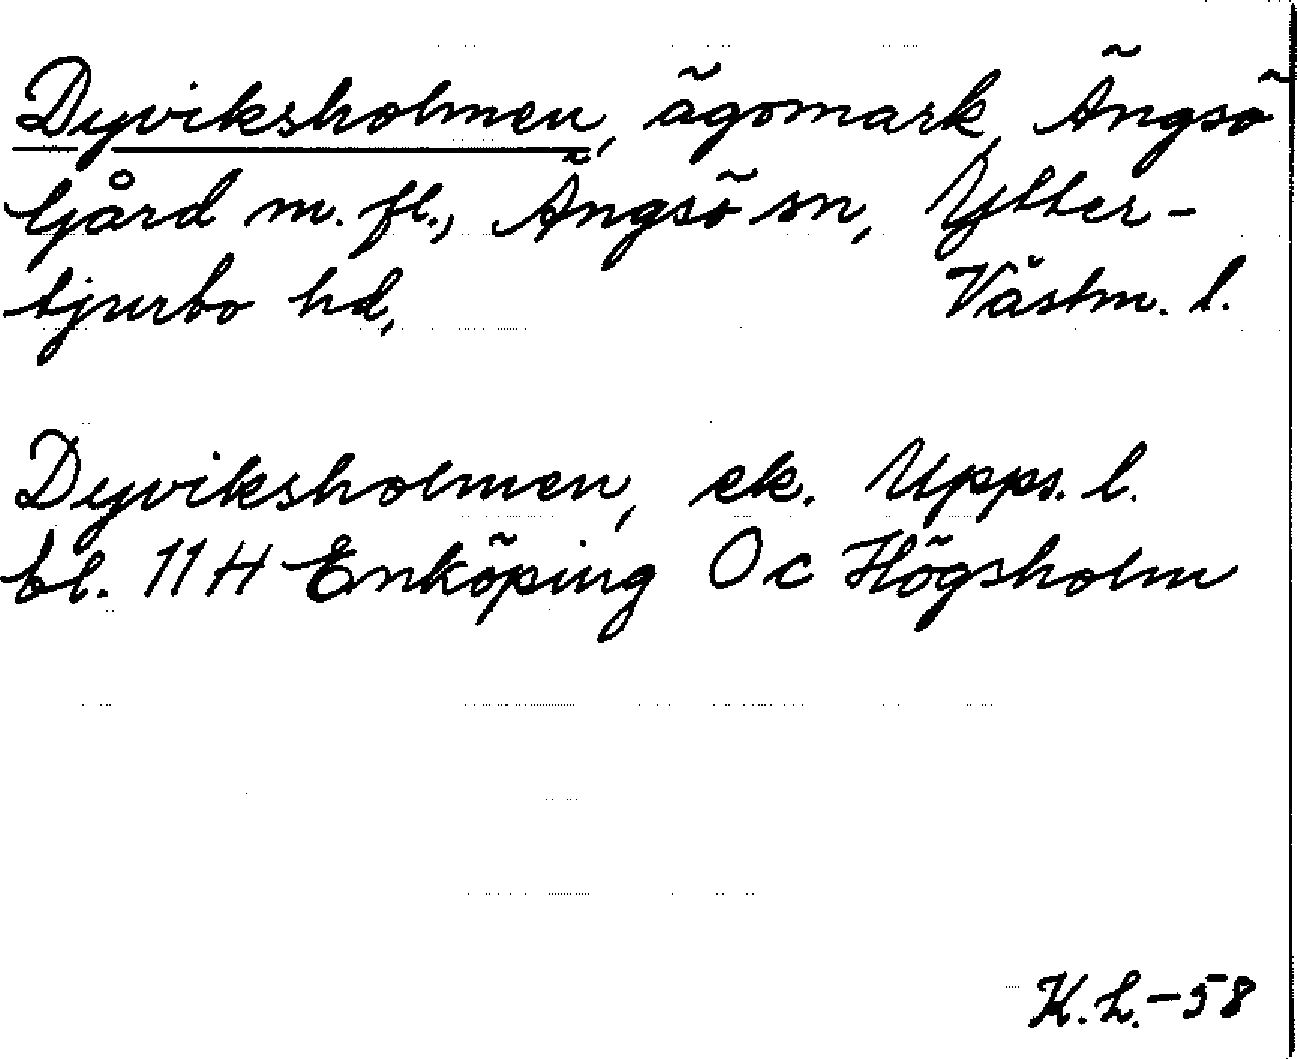 Dyviksholmen, ägomark, Ängsö
Gård m. fl., Ängsö sn, Ytter-
tjurbo hd, Västm. l.
Dyviksholmen, ek. Upps. l.
bl. 11H Enköping 0c Högsholm
K.L.-58